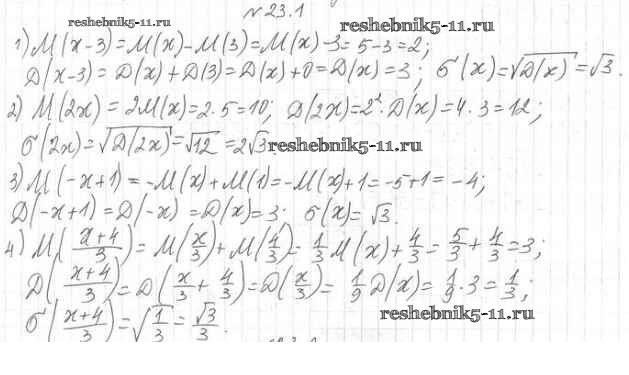 № 23.1
reshebnik5-11.ru
reshebnik5-11.ru
1) M(x-3) = M(x) - M(3) = M(x) - 3 = 5 - 3 = 2;
D(x-3) = D(x) + D(3) = D(x) + 0 = D(x) = 3; σ(x) = √D(x) = √3.
2) M(2x) = 2M(x) = 2·5 = 10; D(2x) = 2²·D(x) = 4·3 = 12;
σ(2x) = √D(2x) = √12 = 2√3.
reshebnik5-11.ru
3) M(-x+1) = -M(x) + M(1) = -M(x) + 1 = -5 + 1 = -4;
D(-x+1) = D(-x) = D(x) = 3; σ(x) = √3.
4) M((x+4)/3) = M(x/3) + M(4/3) = 1/3 M(x) + 4/3 = 5/3 + 4/3 = 3;
D((x+4)/3) = D(x/3 + 4/3) = D(x/3) = 1/9 D(x) = 1/9 · 3 = 1/3;
σ((x+4)/3) = √(1/3) = √3/3.
reshebnik5-11.ru